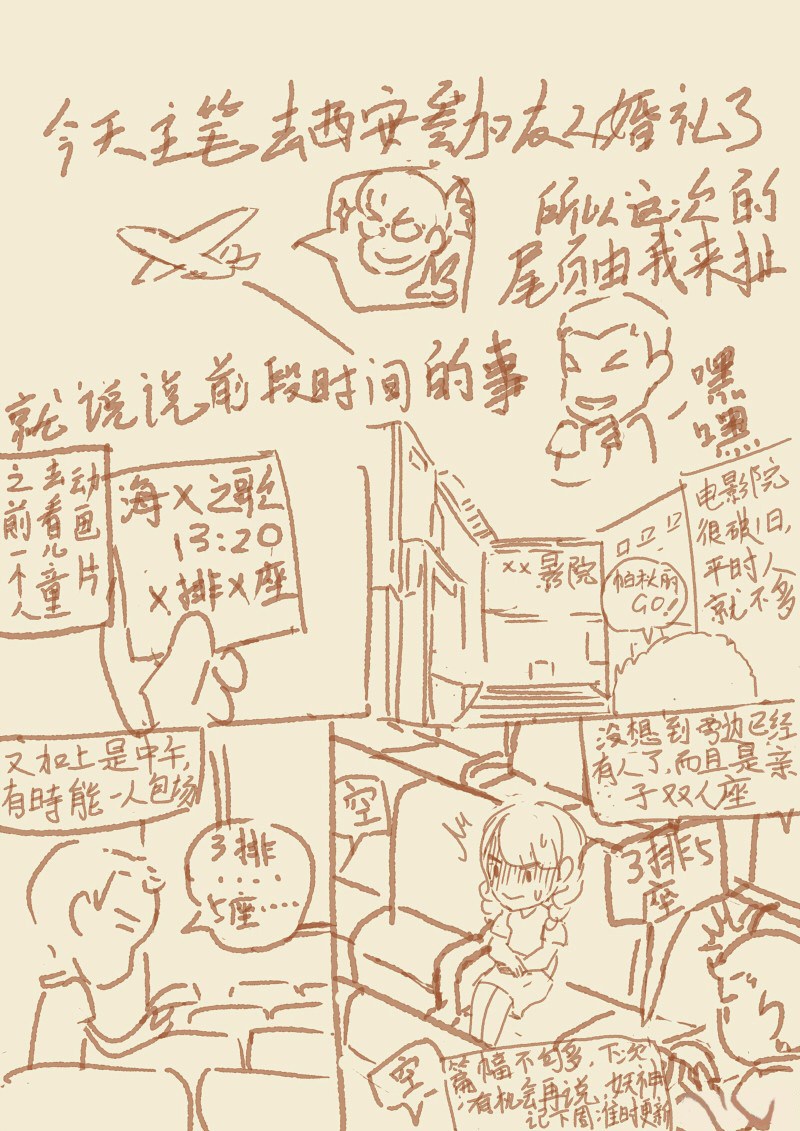 今天主笔去西安参加友人婚礼了
所以这次的
尾页由我来扯
就说说前段时间的事
嘿
嘿
之前一个人
去看儿童
动画片
海X之歌
13:20
X排X座
xx影院
帕秋丽
GO!
电影院
很破旧,
平时人
就不多
又加上是中午,
有時能一人包场
3排
....
5座......
没想到旁边已经
有人了,而且是亲
子双人座
空
3排5
座
空
篇幅不句多,下次
有机会再说,妖神
记下周准时更新